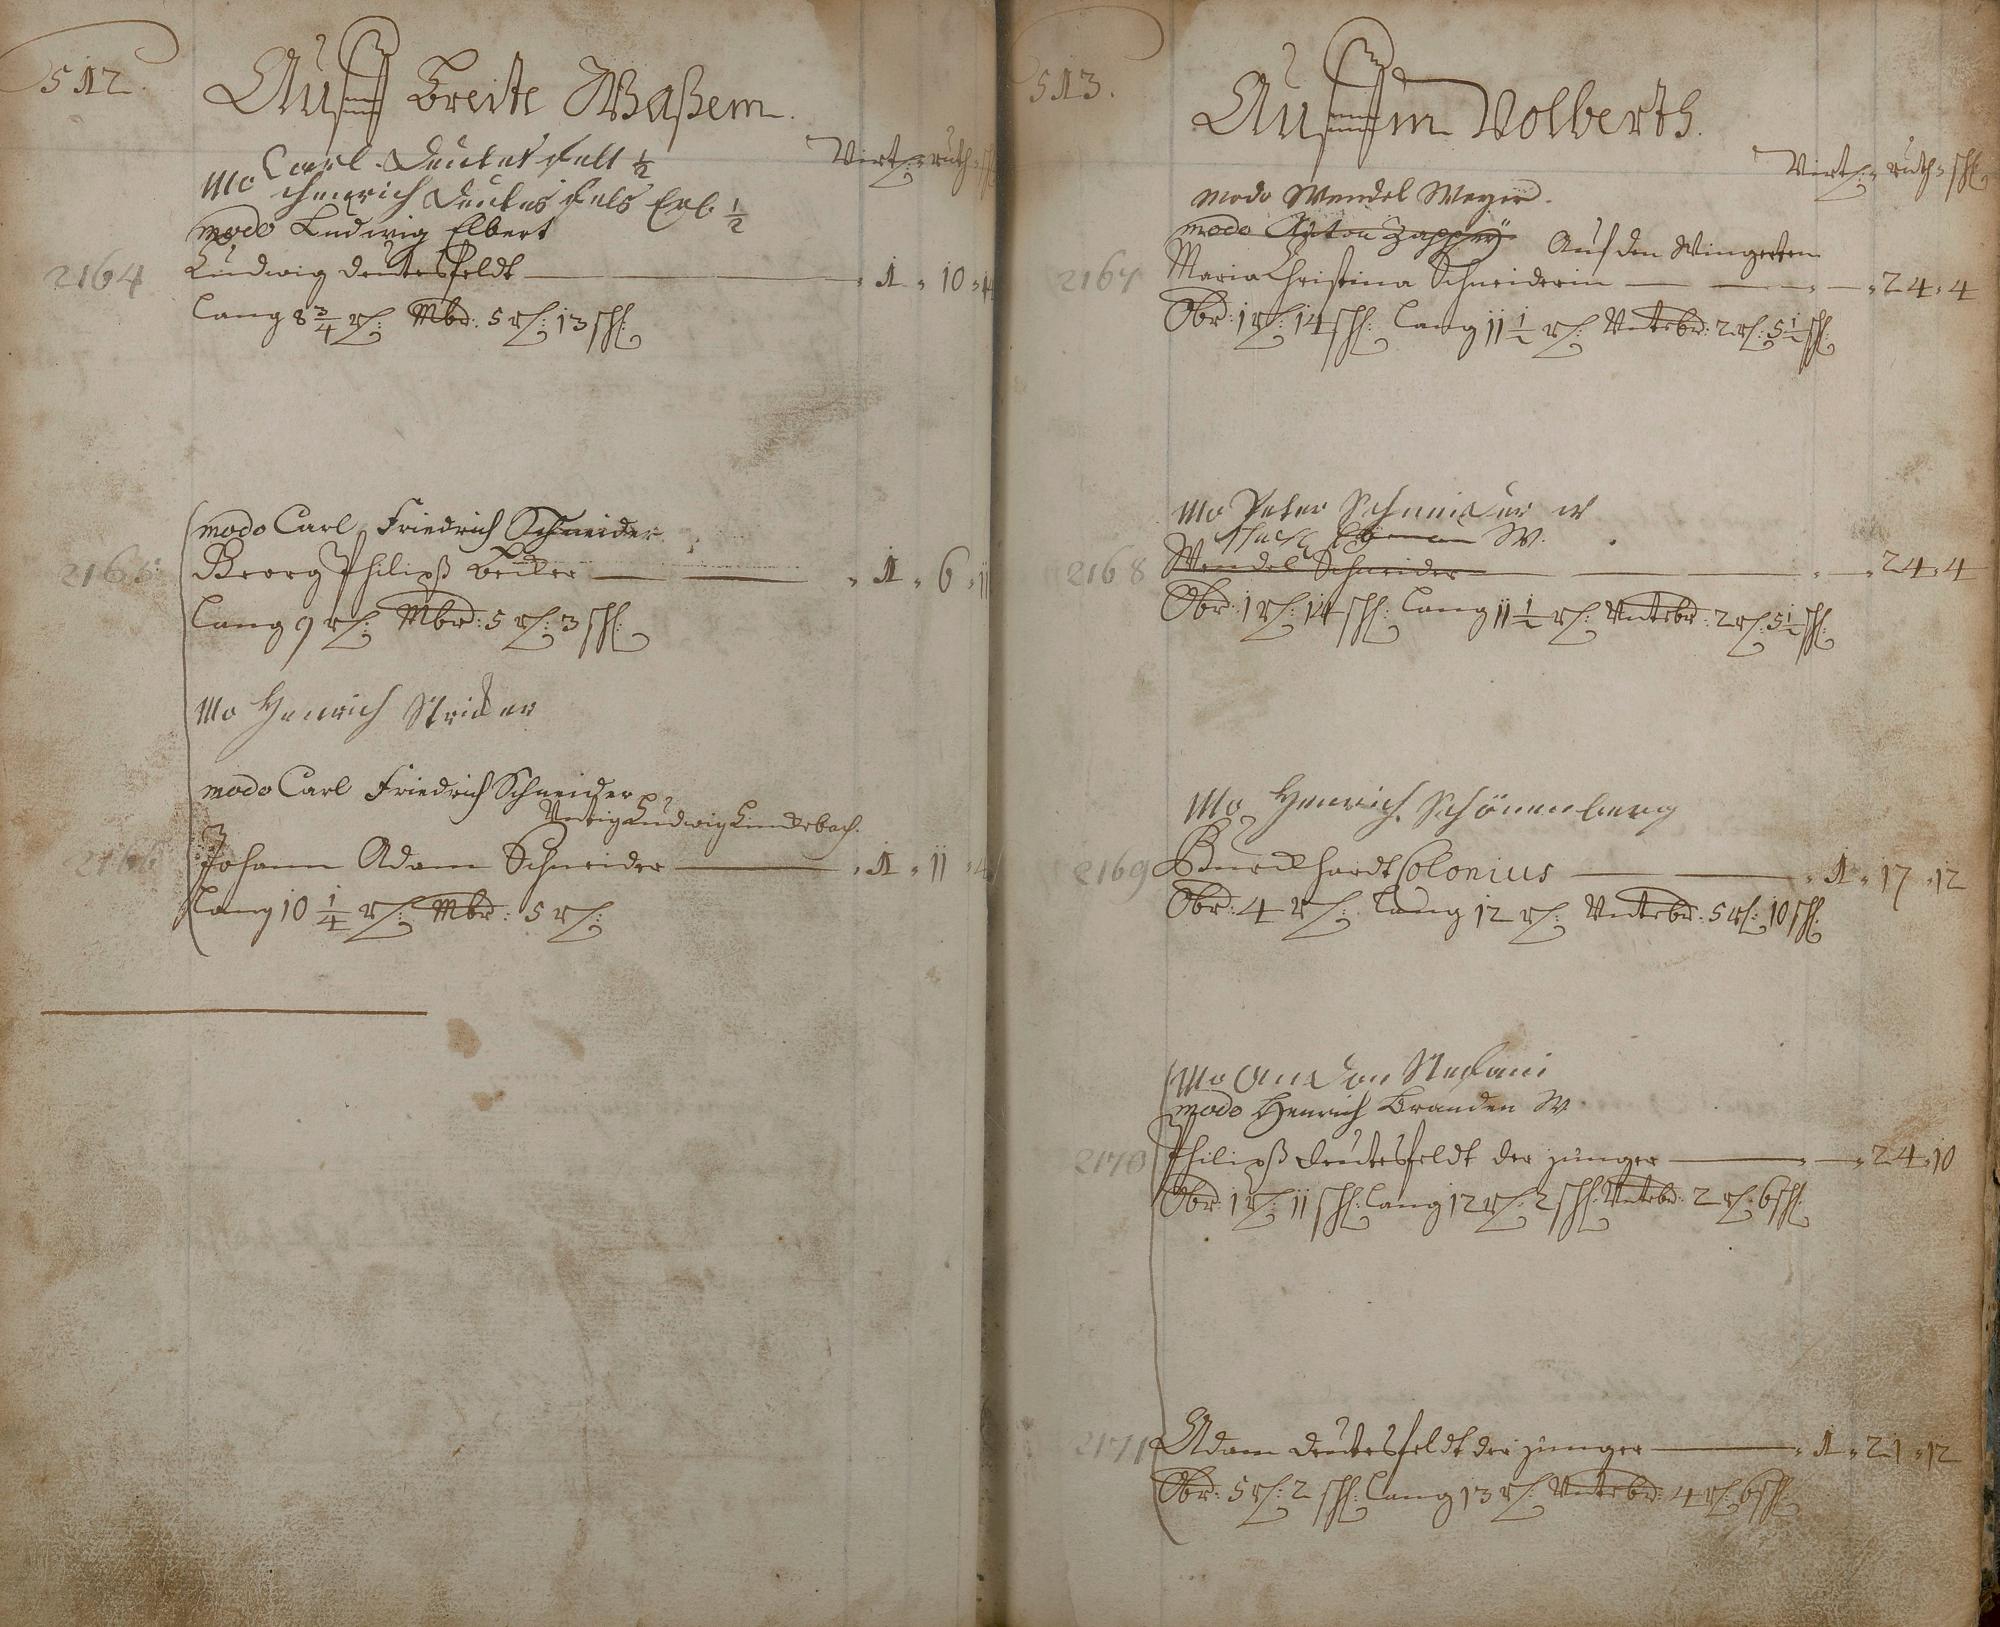 512.
Auff Breite Waßem.
Virt: ruth
Mo Carl Deutesfelt 1/2
Henrich Deutesfels Erb 1/2
modo Ludwig Elbert
2164 Ludwig Deutesfeldt 1 10
Lang 8 3/4 r: Mbr: 5 r: 13 sch:
modo Carl Friedrich Schneider
2165 Georg Philipß Becker 1 6 11
Lang 9 r: Mbr: 5 r: 3 sch:
Mo Henrich Stricker
modo Carl Friedrich Schneider
Ludwig
2166 Johann Adam Schneider 1 11 4
Lang 10 1/4 r: Mbr: 5 r:
513.
Auffm Volberth.
Virt: ruth sch:
modo Wendel Meyer.
modo Anton Zappey Auf den Wingerten
2167 Maria Christina Schneiderin 24 4
Obr: 1 r: 14 sch: Lang 11 1/2 r: Untebr: 2 r: 5 1/2 sch:
Mo Peter Schneider W
W.
2168 Wendel Schneider 24 4
Obr: 1 r: 14 sch: Lang 11 1/2 r: Untebr: 2 r: 5 1/2 sch:
Mo Henrich Schönenberg
2169 Burckhardt Colonius 1 17 12
Obr: 4 r: Lang 12 r: Untebr: 5 r: 10 sch:
Mo
modo Henrich Branden W
2170 Philipß Deutesfeldt der jünger 24 10
Obr: 1 r: 11 sch: Lang 12 r: 2 sch: Untebr: 2 r: 6 sch:
2171 Adam Deutesfeldt der jünger 1 21 12
Obr: 5 r: 2 sch: Lang 13 r: Untebr: 4 r: 6 sch: